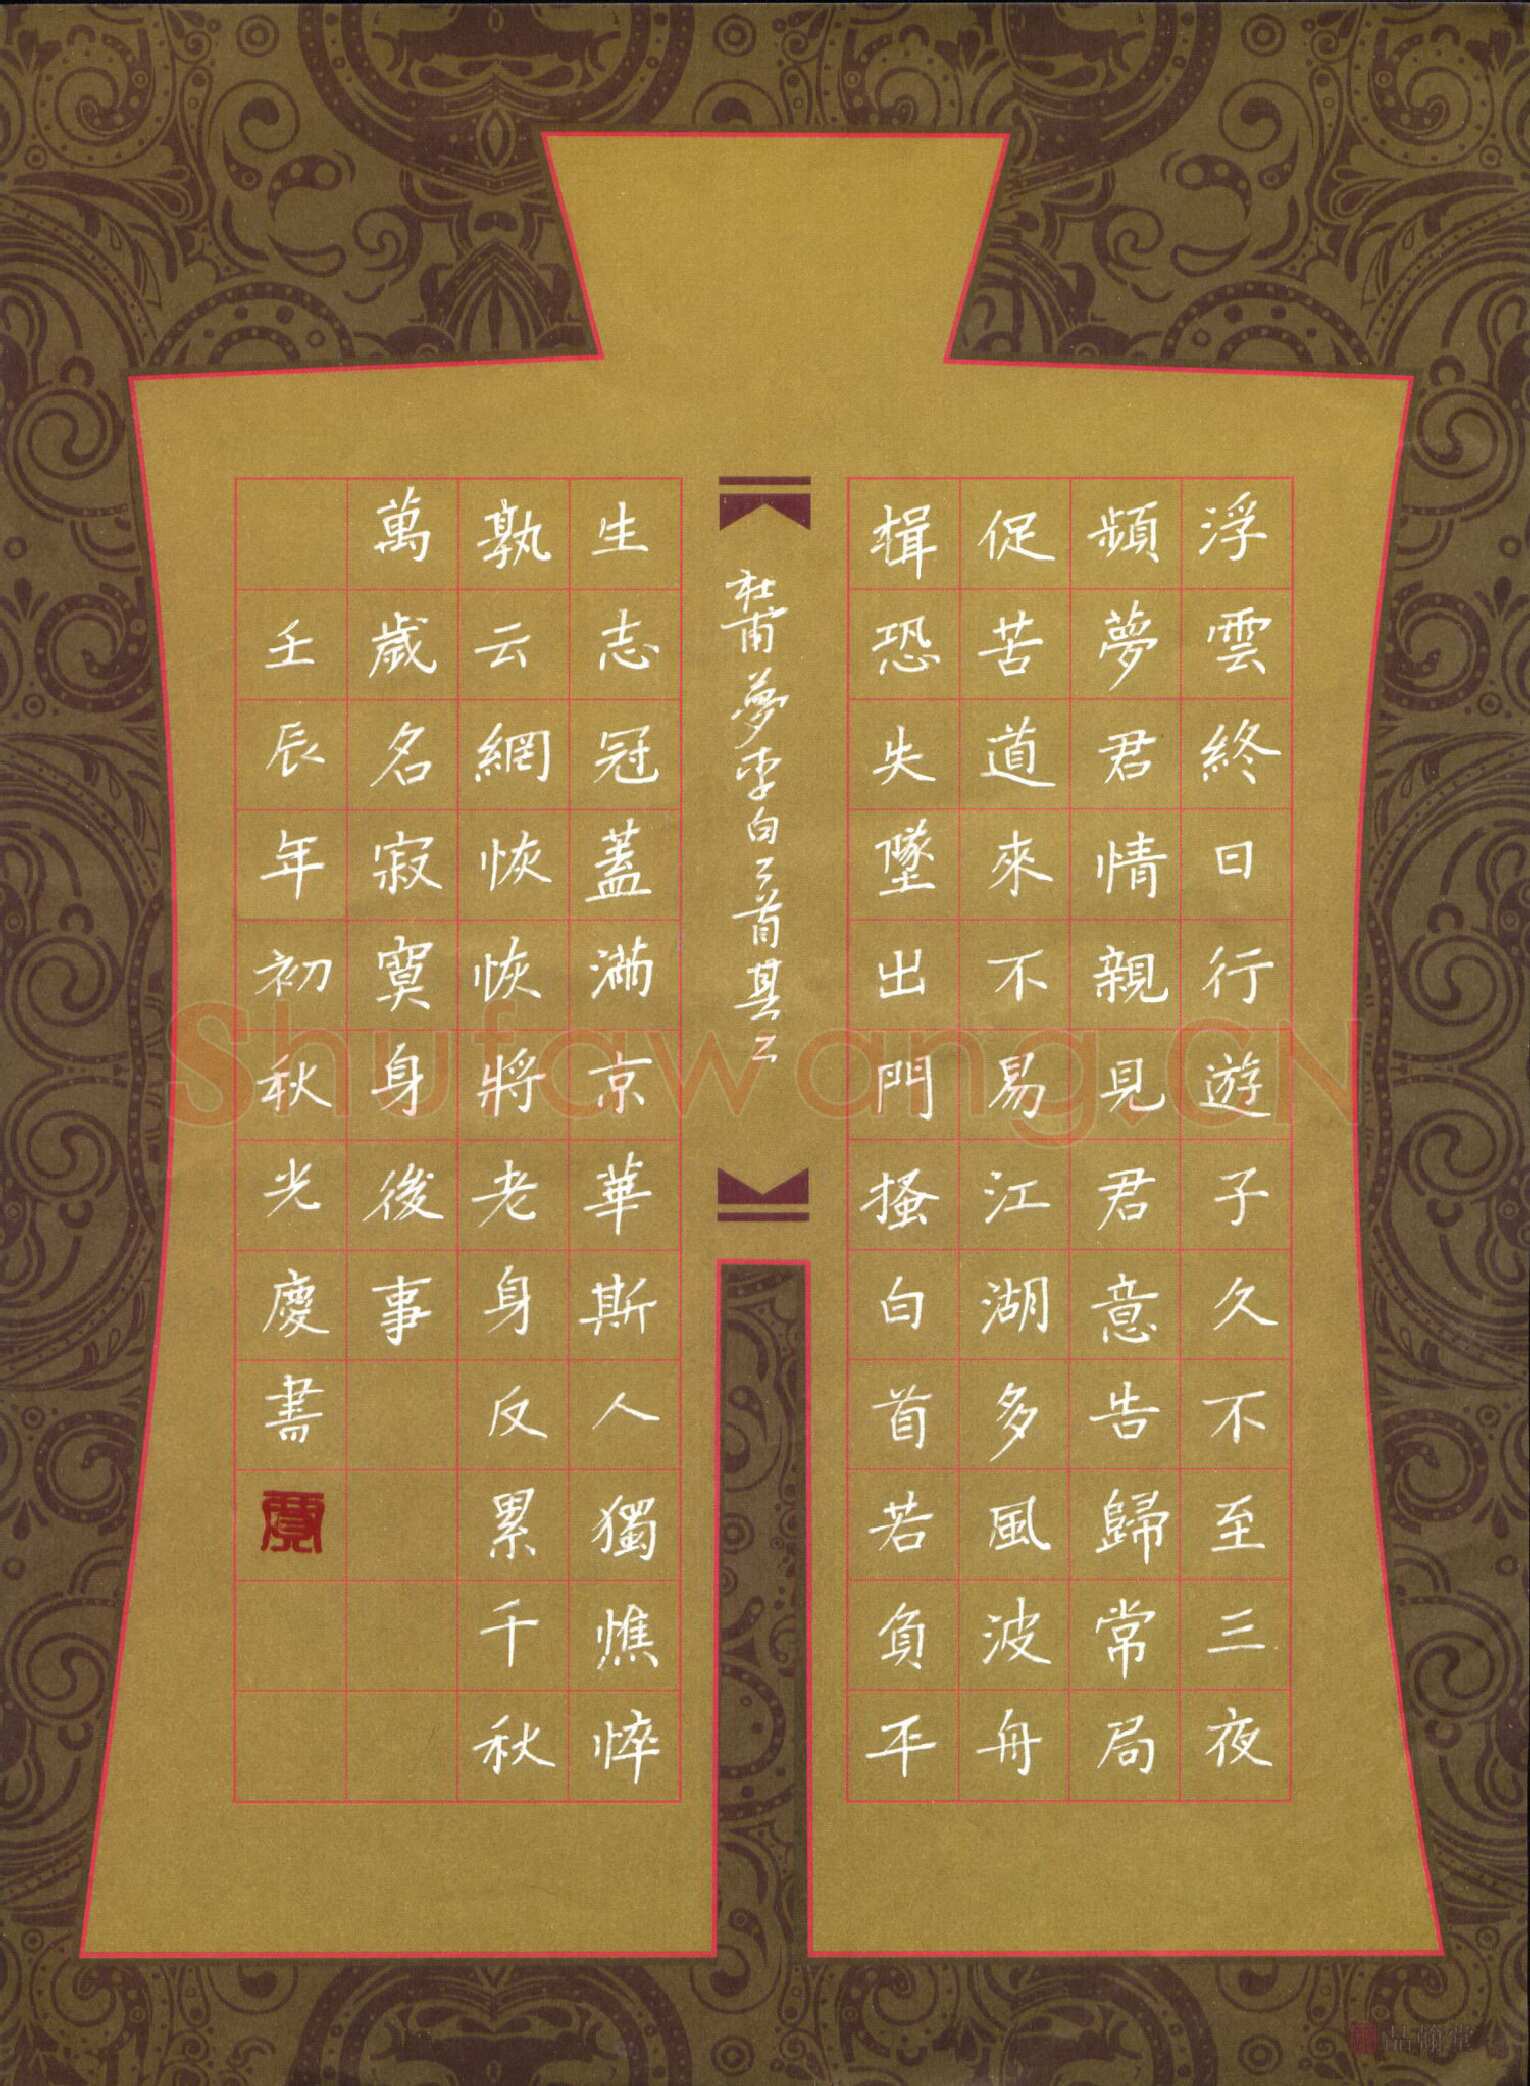 浮雲終日行遊子久不至三夜
頻夢君情親見君意告歸常局
促苦道來不易江湖多風波舟
楫恐失墜出門搔白首若負平
杜甫夢李白二首其二
生志冠蓋滿京華斯人獨憔悴
孰云網恢恢將老身反累千秋
萬歲名寂寞身後事
壬辰年初秋光慶書
Shufawang.CN
品翰堂